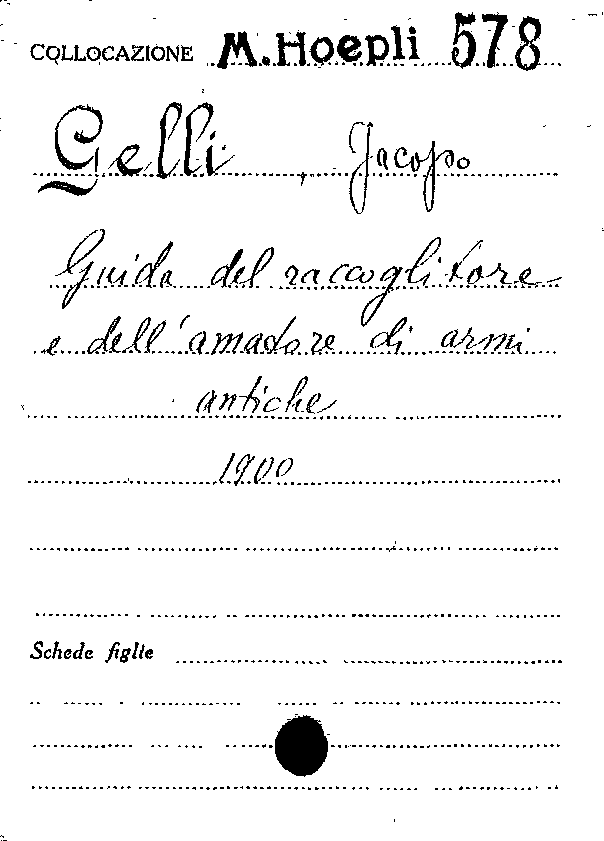 COLLOCAZIONE M. Hoepli 578
Gelli, Jacopo
Guida del raccoglitore
e dell'amatore di armi
antiche
1900
Schede figlie